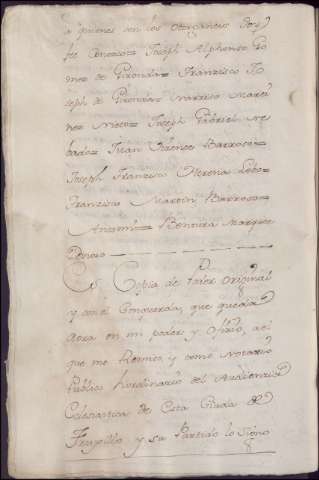 a quienes en los otorgantes doy
fee conosco= Joseph Alphonso
de Gironda= Franzisco Jo
seph de Gironda= Marcos Marti
nez Nieto= Joseph Gabriel
Juan Barroso=
Joseph Franzisco Morena Lobo=
Franzisco Martin Barroso=
Antemi= Bentura Marquez
Donoso
Es Copia de su Original
y con el Conquerda, que queda
aora en mi poder y ofizio, a el
que me Remito y como Notario
Publico hordinario del Audienzia
Eclesiastica de Esta Ciudad de
Trujillo y su Partido lo Signo